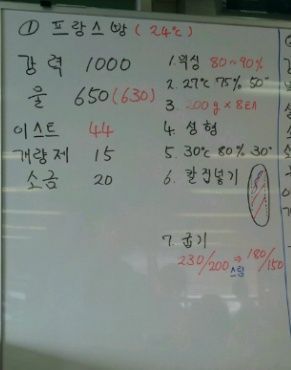 ① 프랑스빵 (24℃)
강력 1000
물 650(630)
이스트 44
개량제 15
소금 20
1. 믹싱 80~90%
2. 27℃ 75% 50"
3. 200g × 8EA
4. 성형
5. 30℃ 80% 30"
6. 칼집넣기
7. 굽기
230/200 ⇒ 180/150
스팀